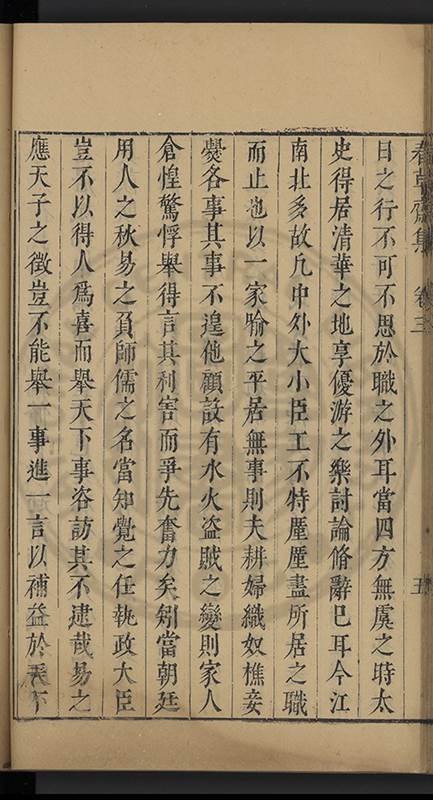 日之行不可不思於職之外耳當四方無虞之時太
史得居清華之地享優游之樂討論脩辭已耳今江
南北多故凡中外大小臣工不特厘厘盡所居之職
而止也以一家喻之平居無事則夫耕婦織奴樵妾
爨各事其事不遑他顧設有水火盗賊之變則家人
倉惶驚悸舉得言其利害而爭先奮力矣矧當朝廷
用人之秋易之負師儒之名當知覺之任執政大臣
豈不以得人爲喜而舉天下事咨訪其不逮哉易之
應天子之徵豈不能舉一事進一言以補益於天下
齋集 卷三
五